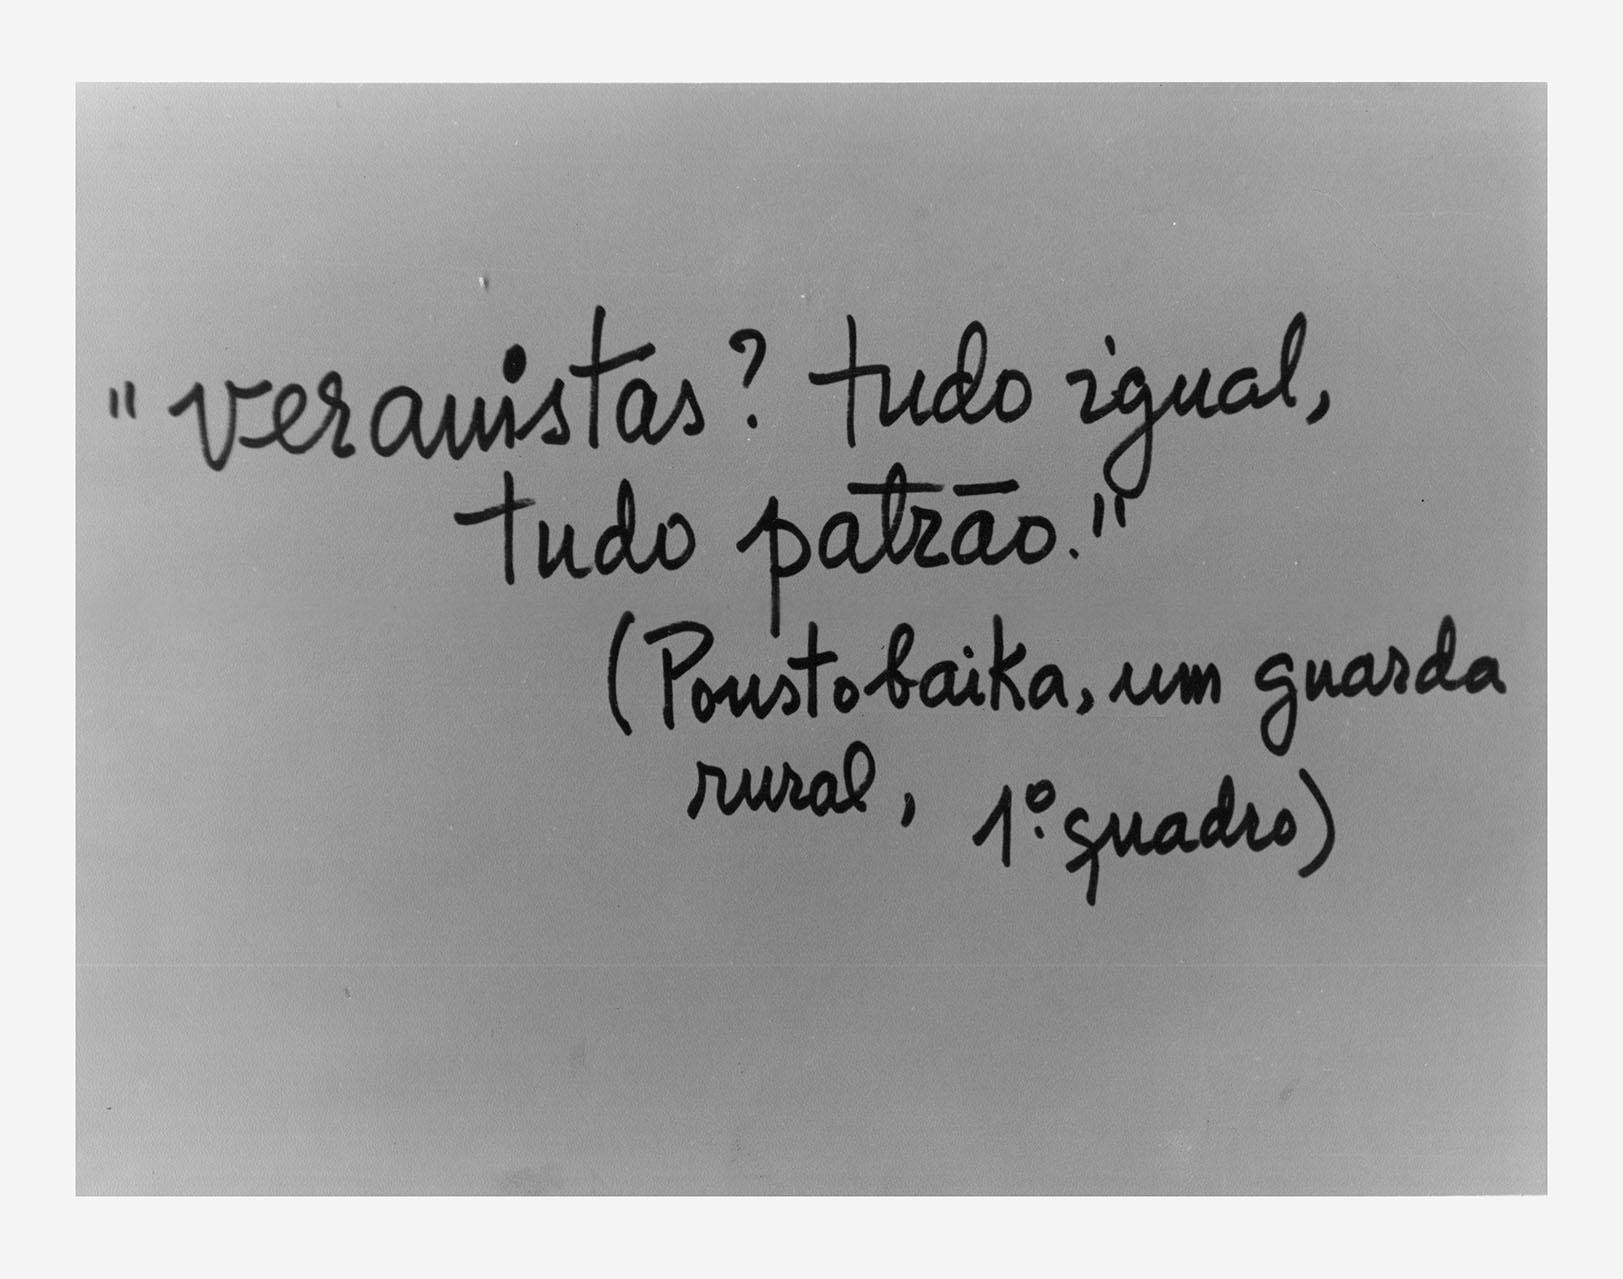 "veranistas? tudo igual,
tudo patrão."
(Poustobaika, um guarda
rural, 1º. quadro)